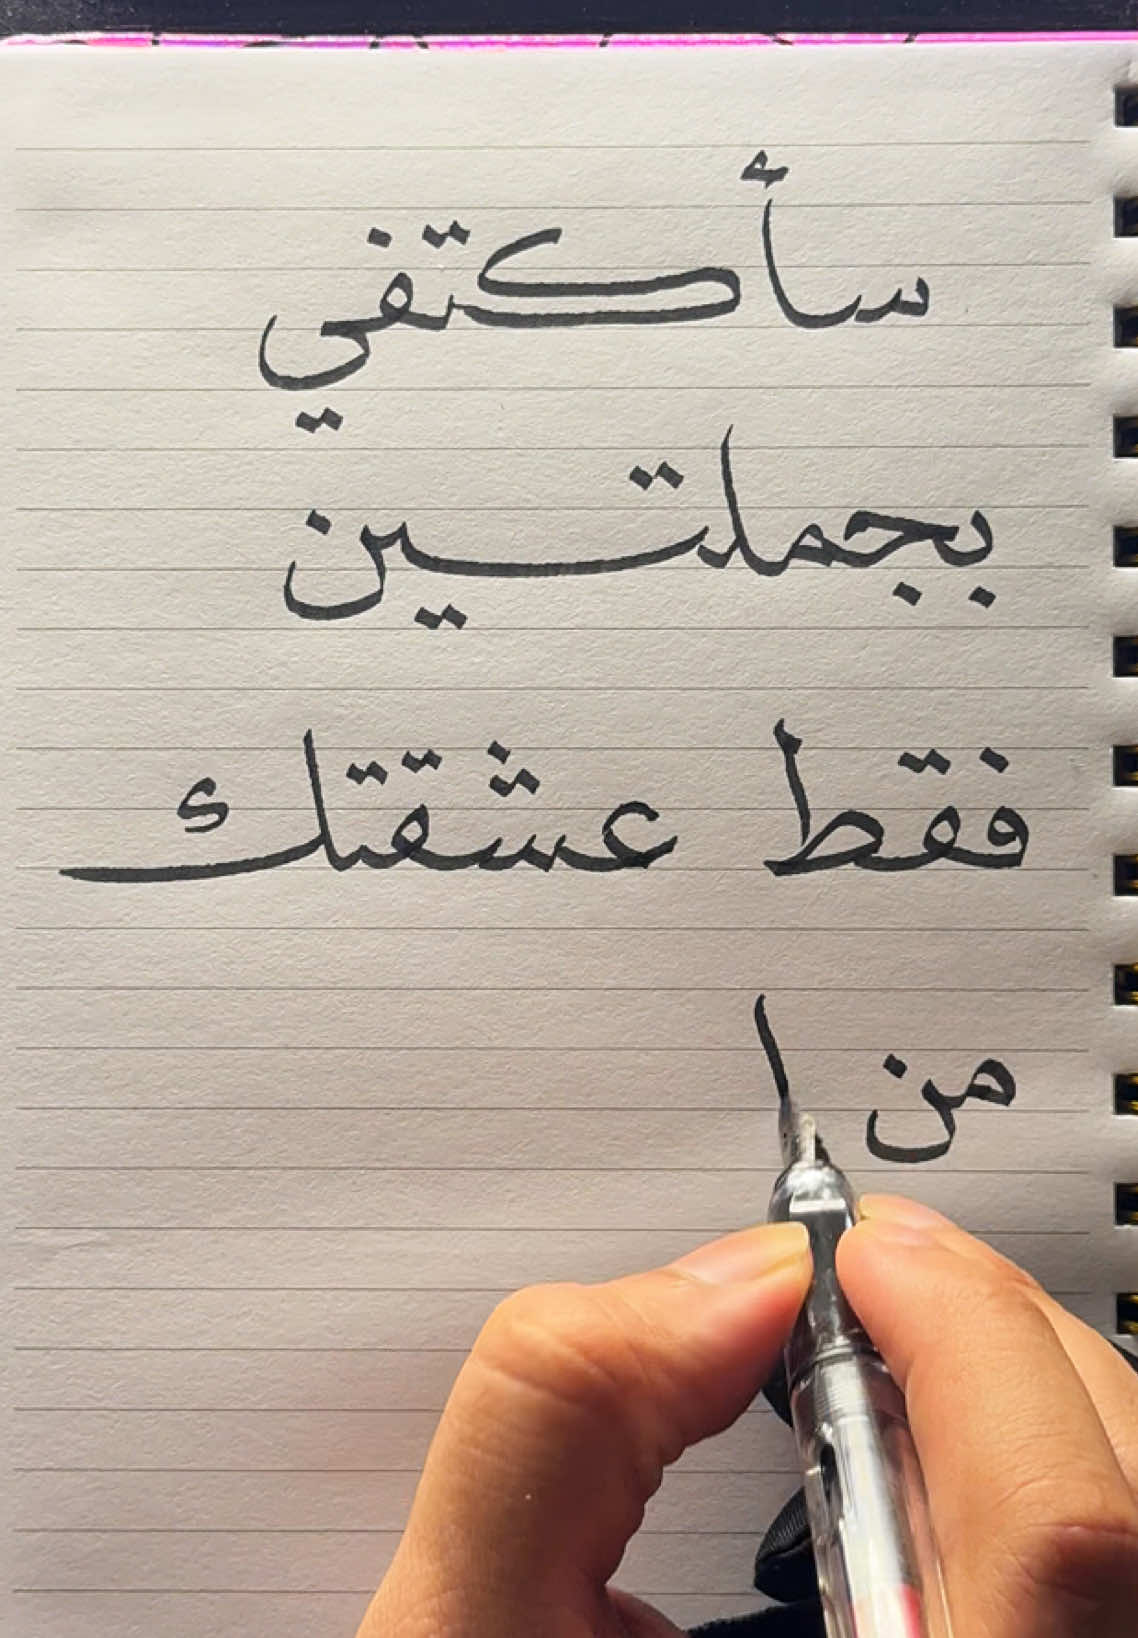 سأكتفي
بجملتين
فقط عشقتك
من ا